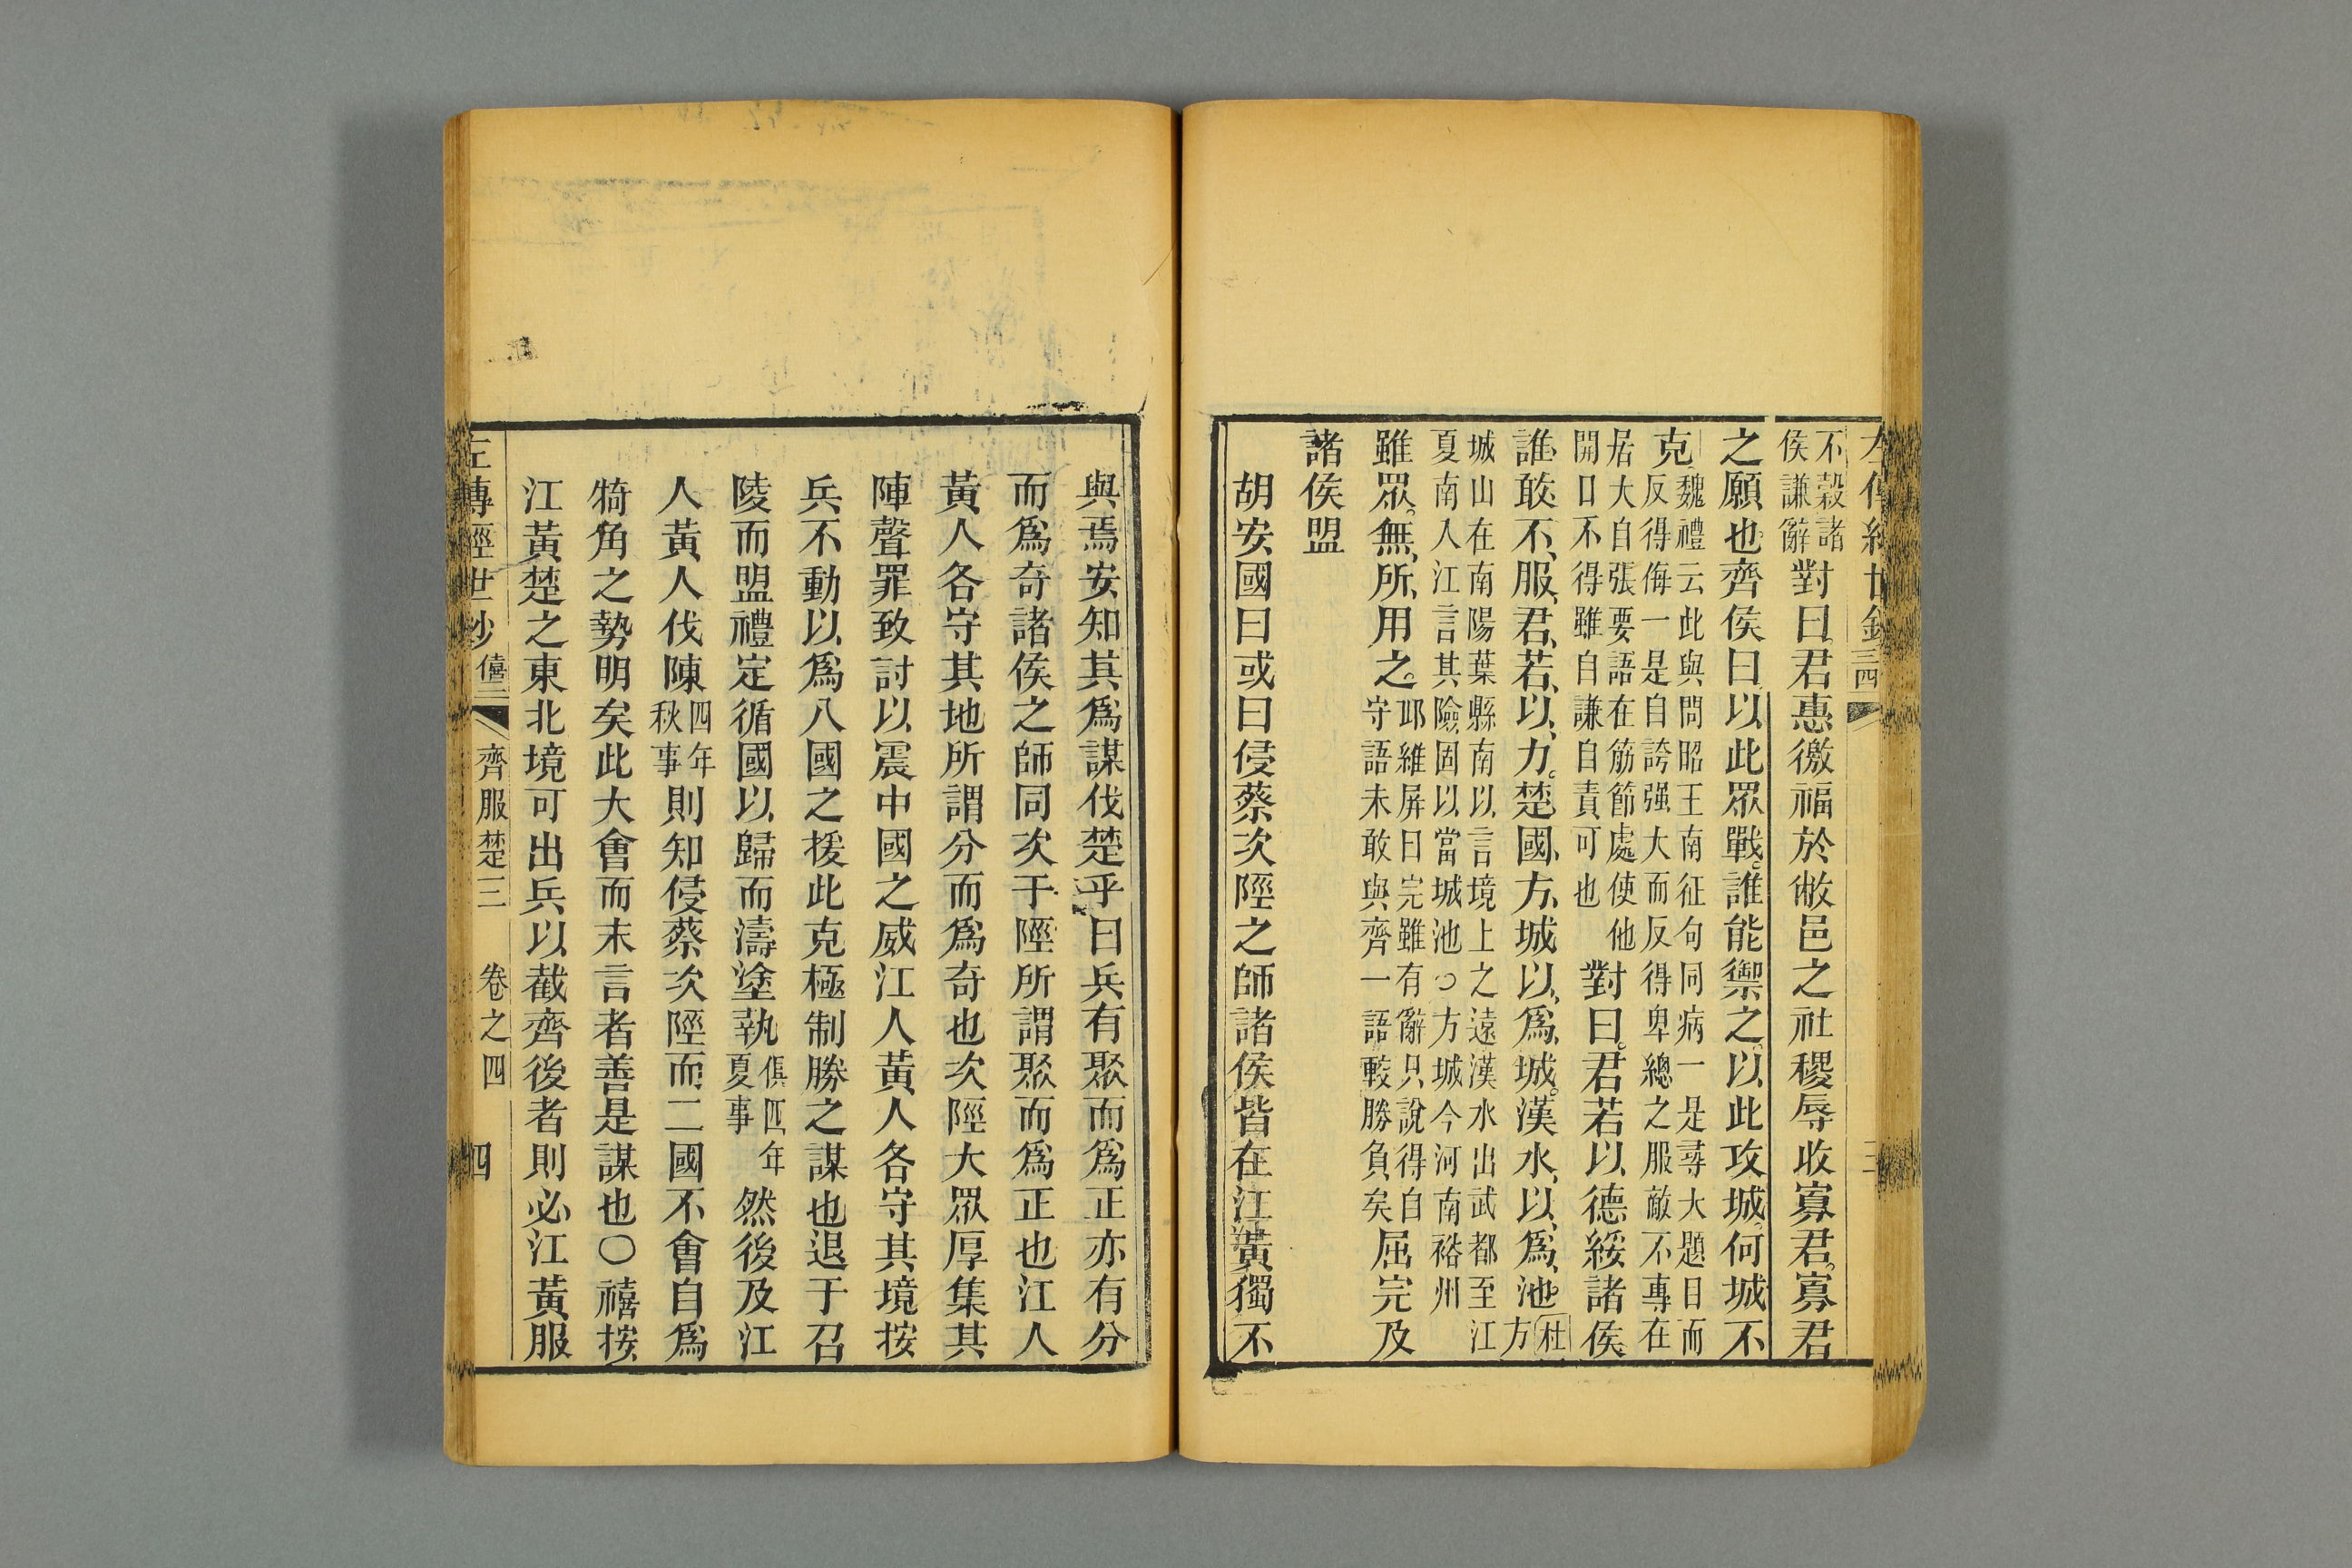 不穀諸
侯謙辭
對曰君惠徼福於敝邑之社稷辱收寡君寡君
之願也齊侯曰以此眾戰誰能禦之以此攻城何城不
克
魏禮云此與問昭王南征句同病一是尋大題目而
反得侮一是自誇强大而反得卑總之服敵不專在
居大自張要語在筋節處使他
開口不得雖自謙自責可也
對曰君若以德綏諸侯
誰敢不服君若以力楚國方城以為城漢水以為池
杜
方
城山在南陽葉縣南以言境上之遠漢水出武都至江
夏南人江言其險固以當城池○方城今河南裕州
雖眾無所用之
邱維屏曰完雖有辭只說得自
守語未敢與齊一語較勝負矣
屈完及
諸侯盟
胡安國曰或曰侵蔡次陘之師諸侯皆在江黃獨不
三四
與焉安知其爲謀伐楚乎曰兵有聚而爲正亦有分
而爲奇諸侯之師同次于陘所謂聚而爲正也江人
黃人各守其地所謂分而爲奇也次陘大眾厚集其
陣聲罪致討以震中國之威江人黃人各守其境按
兵不動以爲八國之援此克極制勝之謀也退于召
陵而盟禮定循國以歸而濤塗執
俱四年
夏事
然後及江
人黃人伐陳
四年
秋事
則知侵蔡次陘而二國不會自爲
犄角之勢明矣此大會而末言者善是謀也○禧按
江黃楚之東北境可出兵以截齊後者則必江黃服
左傳經世鈔
僖三
齊服楚三
卷之四
四